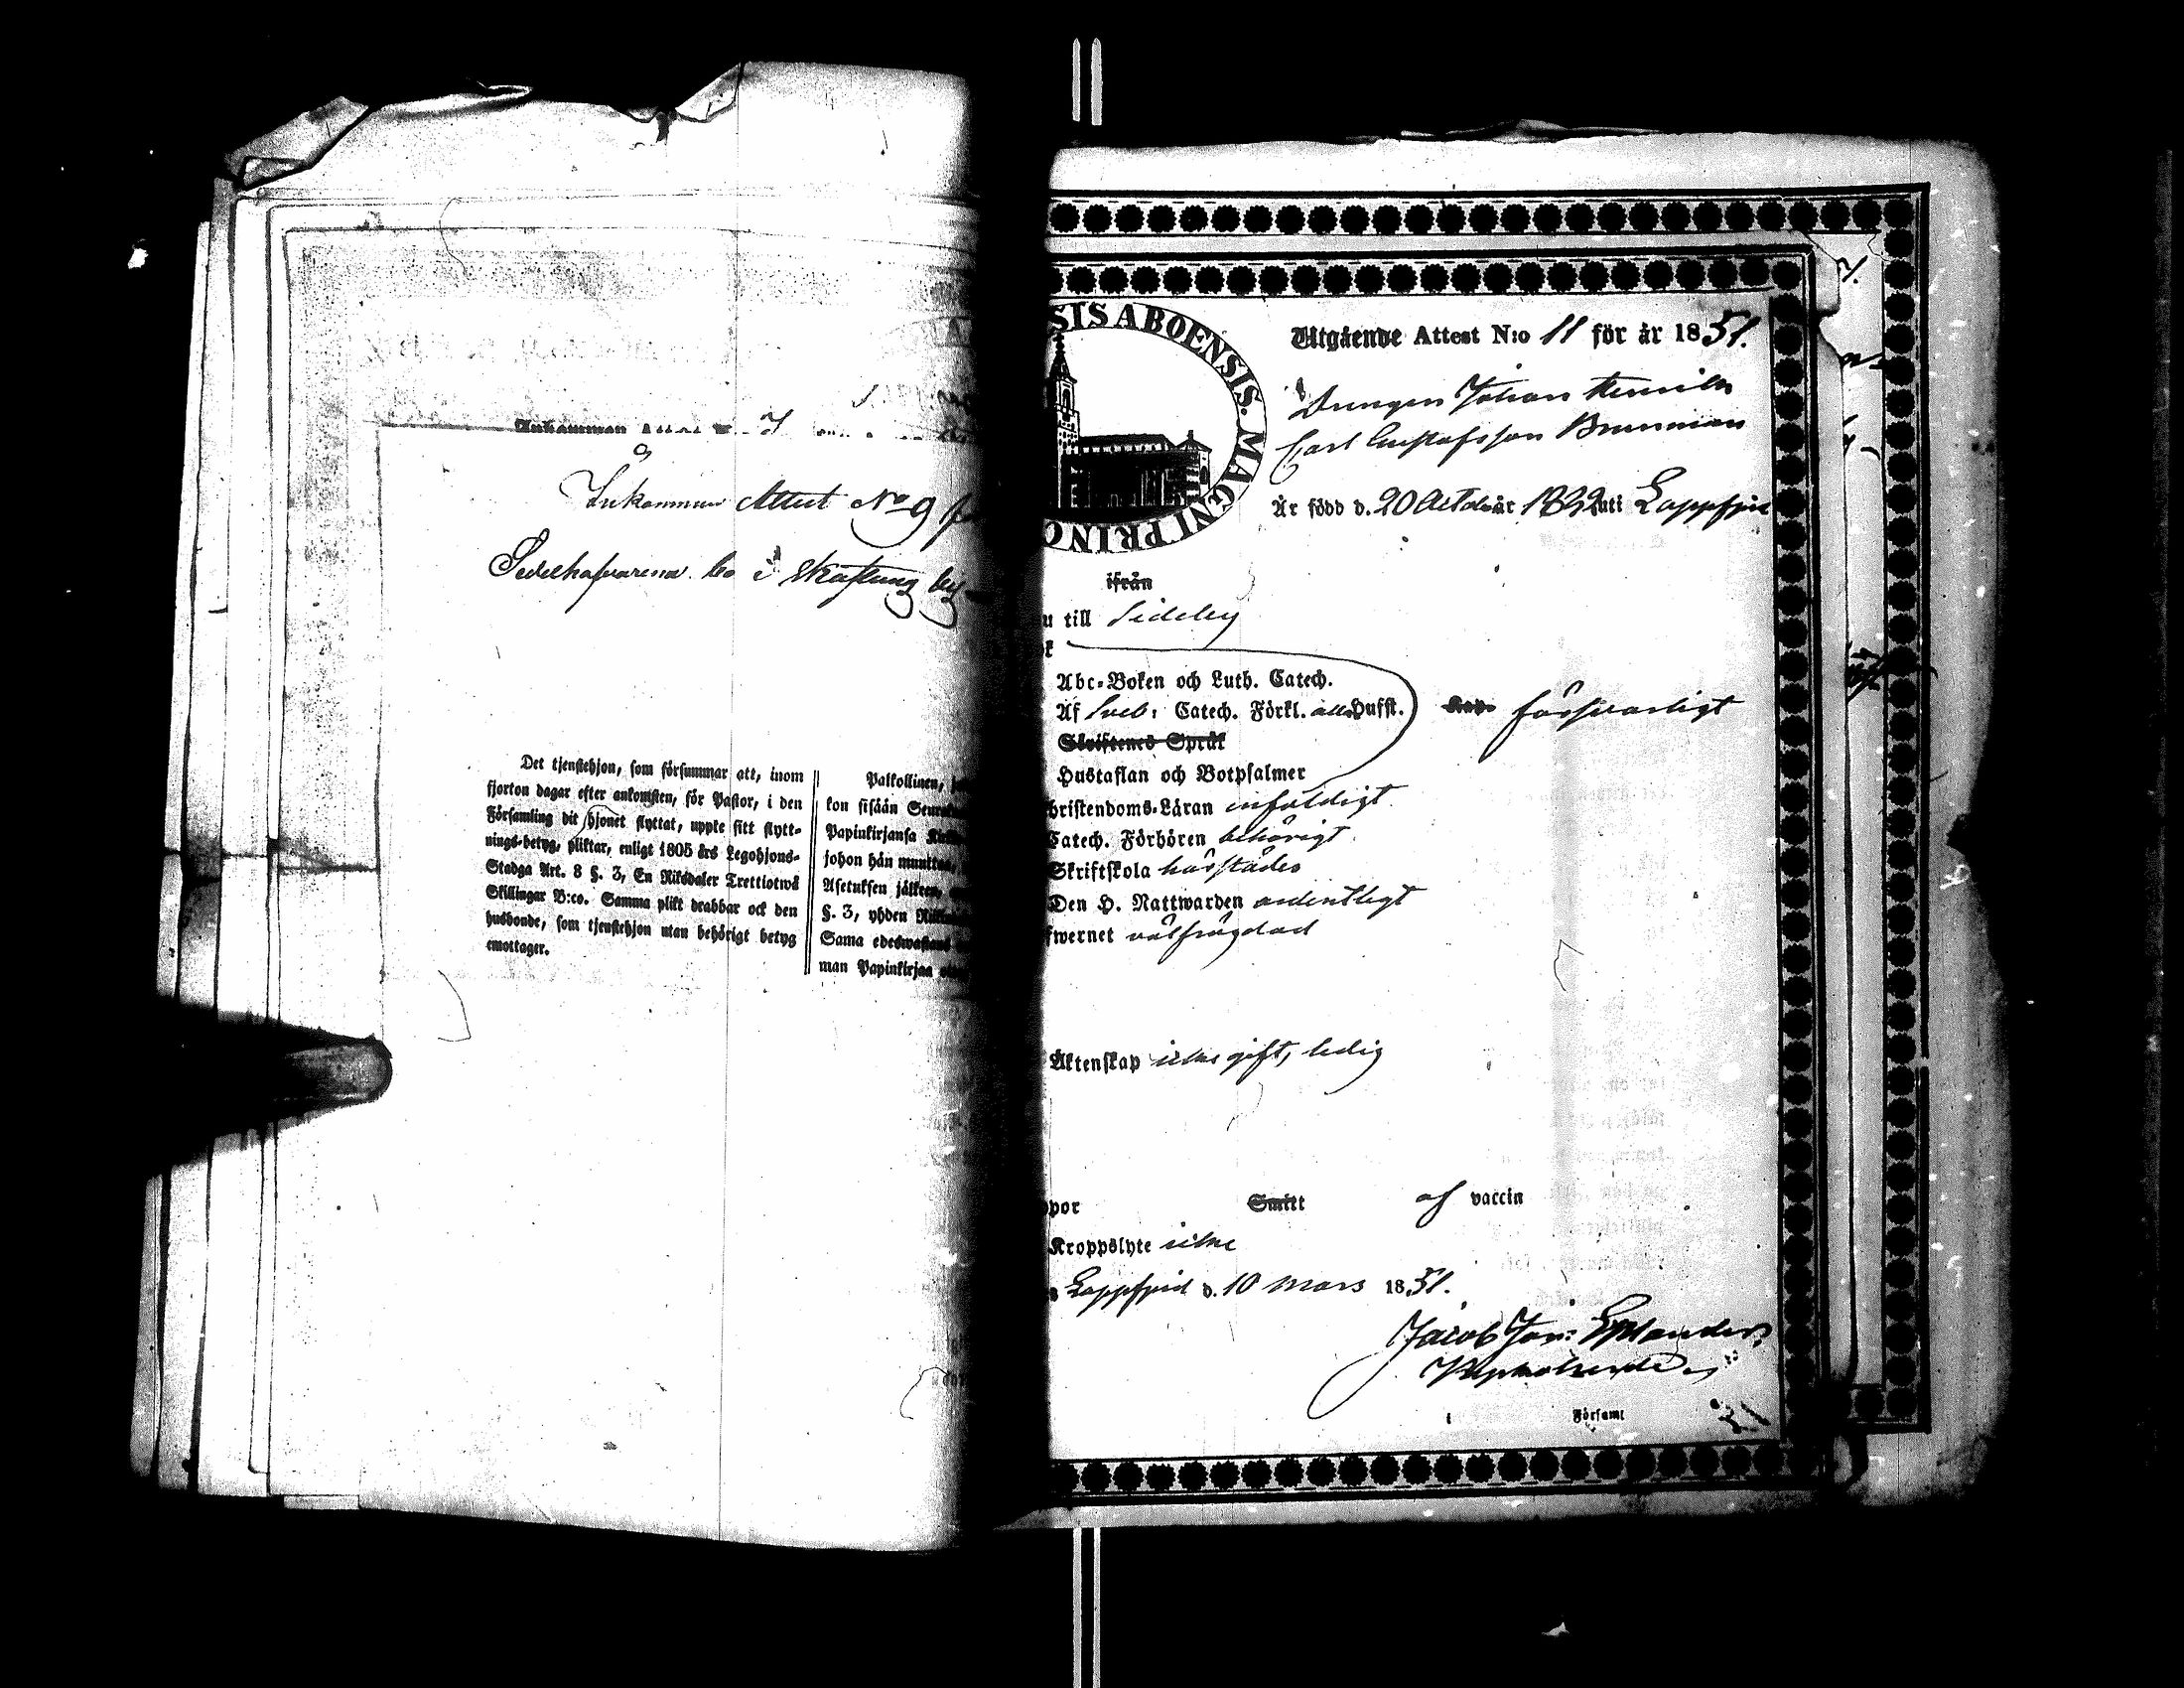 Inkommen Attest No 9
Sedelhafvarena bo i Skaftung by
Det tjenstehjon, som försummar att, inom
fjorton dagar efter ankomsten, för Pastor, i den
Församling dit hjonet flyttat, uppte sitt flytt-
nings-betyg, pliktar, enligt 1805 års Legohjons-
Stadga Art. 8 §. 3, En Riksdaler Trettiotwå
Skillingar B:co. Samma plikt drabbar ock den
husbonde, som tjenstehjon utan behörigt betyg
emottager.
Palkollinen,
kon sisään Seura
Papinkirjansa
johon hän muuttaa,
Asetuksen jälkeen,
§. 3, yhden
Sama edeswastaus
man Papinkirjaa
SIS ABOENSIS. MAGNI PRINC
Utgående Attest N:o 11 för år 1851.
Drengen Johan Henrik
Carl Gustafsson Brunnman
Är född d. 20 Octob. år 1832 uti Lappfjerd
ifrån
till Sideby
Abc-Boken och Luth. Catech.
Af Sveb: Catech. Förkl. alla Hufst. Kap. försvarligt
Skriftenes Språk
Hustaflan och Botpsalmer
hristendoms-Läran enfaldigt
Catech. Förhören behörigt
Skriftskola härstädes
Den H. Nattwarden ordentligt
fwernet välfrägdad
Äktenskap icke gift, ledig
ppor Smitt af vaccin
Kroppslyte icke
Lappfjerd d. 10 Mars 1851.
Jacob Joh: Eplander
Församl